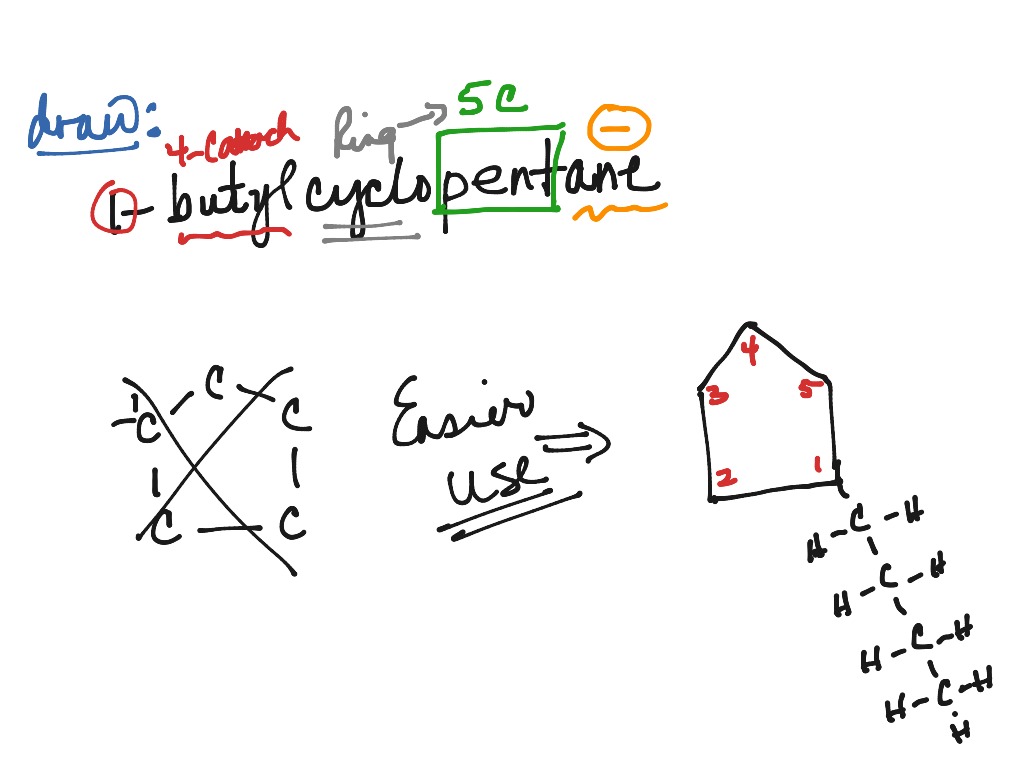 draw:
4-C attach
Ring → 5C
1- butyl cyclopentane
C
C C
C C
Easier
use
4
3 5
2 1
C - H
H -
C - H
H -
C - H
H -
C - H
H -
H